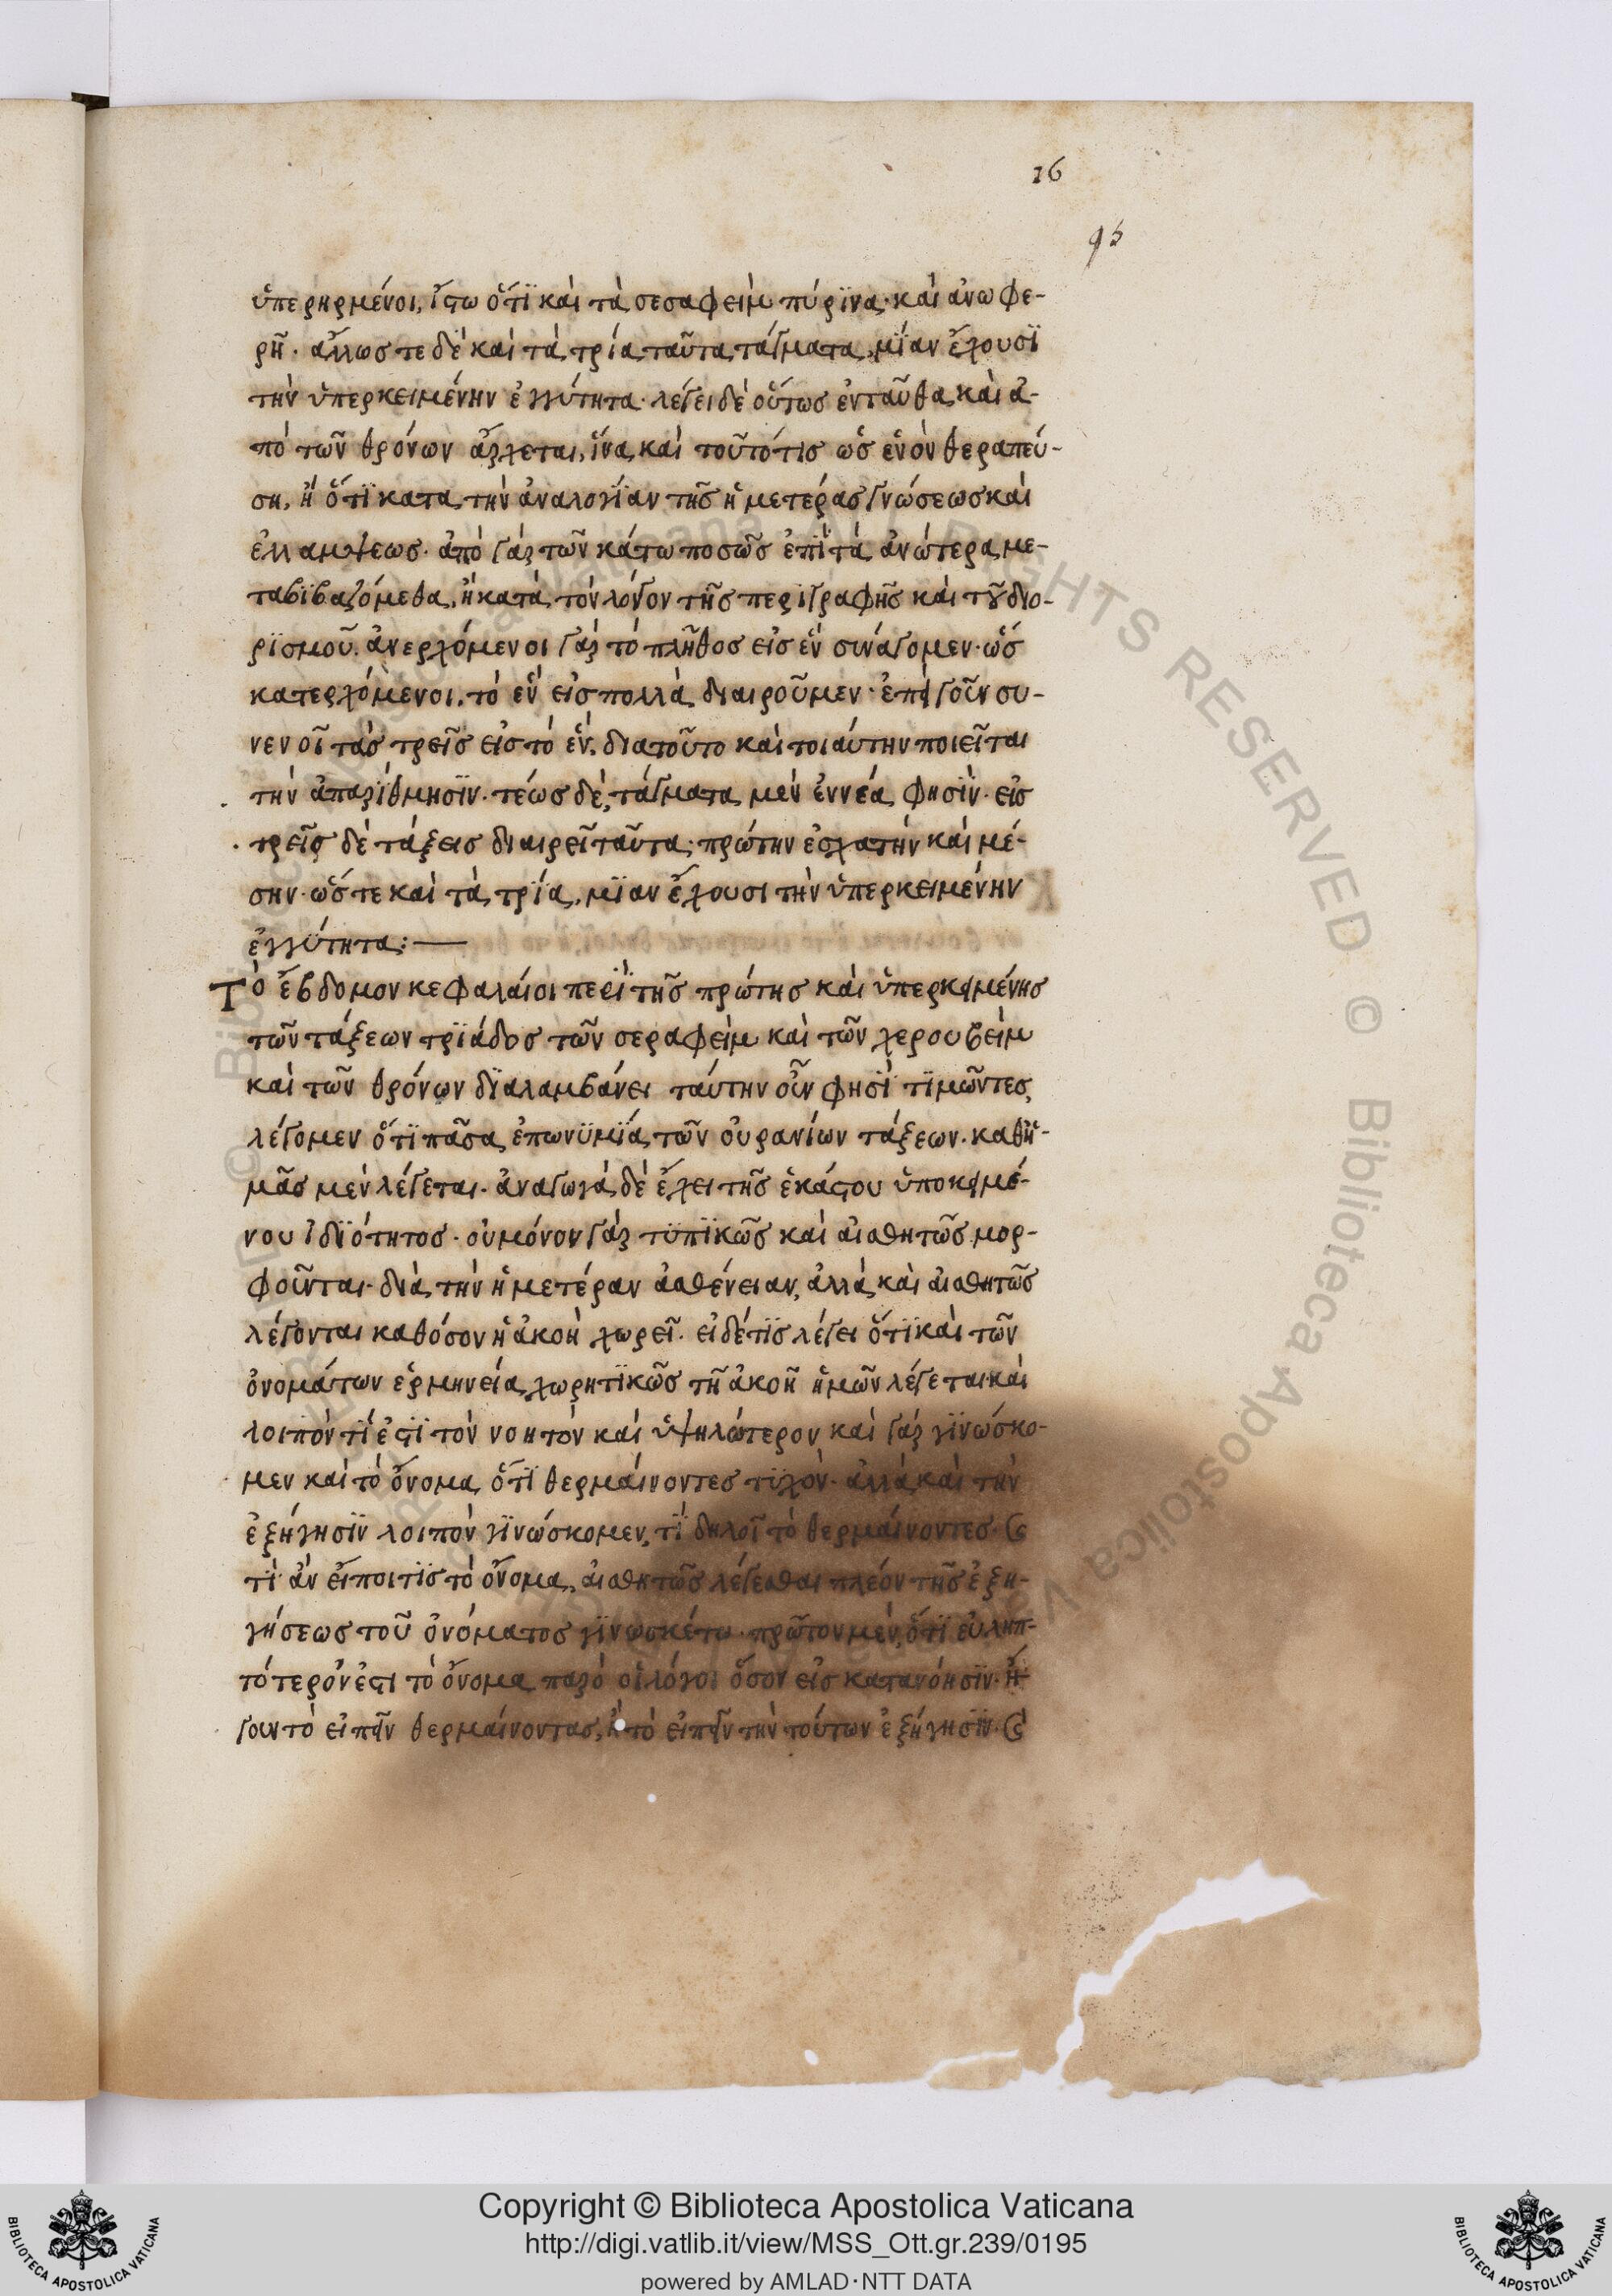 16
95
ὑπερηρμένοι, ἴστω ὅτϊ καὶ τὰ σεσαφεὶμ πύρϊνα· καὶ ἀνωφε-
ρῆ· ἄλλωστε δὲ καὶ τὰ τρία ταῦτα τάγματα, μΐαν ἔχουσϊ
τὴν ὑπερκειμένην ἐγγύτητα· λέγει δὲ οὕτως ἐνταῦθα καὶ ἀ-
πὸ τῶν θρόνων ἄρχεται, ἵνα καὶ τοῦτό τις ὡς ἐνὸν θεραπεύ-
ση, ἢ ὅτϊ κατα τὴν ἀναλογΐαν τῆς ἡμετέρας γνώσεως καὶ
ἐλλαμψεως· ἀπὸ γὰρ τῶν κάτω ποσῶς ἐπῒ τὰ ἀνώτερα με-
ταβϊβαζόμεθα, ἢ κατὰ τὸν λόγον τῆς περιγραφῆς καὶ τοῦ διο-
ρϊσμοῦ. ἀνερχόμενοι γὰρ τὸ πλῆθος εἰς ἓν συνάγομεν· ὡς
κατερχόμενοι, τὸ ἓν εἰς πολλὰ διαιροῦμεν· ἐπεὶ γοῦν συ-
νενοῖ τὰς τρεῖς εἰς τὸ ἓν, διατοῦτο καὶ τοιαύτην ποιεῖται
τὴν ἀπαρίθμησϊν· τέως δὲ, τάγματα μὲν ἐννέα φησῒν· εἰς
τρεῖς δὲ τάξεις διαιρεῖ ταῦτα· πρώτην ἐσχατὴν καὶ μέ-
σην· ὥστε καὶ τὰ τρΐα, μΐαν ἔχουσι τὴν ὑπερκειμένην
ἐγγύτητα:—
Τὸ ἕβδομον κεφαλαίοι περῒ τῆς πρώτης καὶ ὑπερκειμένης
τῶν τάξεων τρϊάδος τῶν σεραφεὶμ καὶ τῶν χερουβεὶμ
καὶ τῶν θρόνων δϊαλαμβάνει ταύτην οὖν φησῒ τϊμῶντες,
λέγομεν ὅτϊ πᾶσα ἐπωνϋμΐα τῶν οὐρανίων τάξεων· καθη-
μᾶς μὲν λέγεται· ἀναγωγὰ δὲ ἔχει τῆς ἑκάστου ὑποκειμέ-
νου ἰδϊότητος· οὐμόνον γὰρ τϋπϊκῶς καὶ αἰσθητῶς μορ-
φοῦνται· διὰ τὴν ἡμετέραν ἀσθένειαν, ἀλλὰ καὶ αἰσθητῶς
λέγονται καθόσον ἡ ἀκοὴ χωρεῖ· εἰ δέ τϊς λέγει ὅτϊ καὶ τῶν
ὀνομάτων ἑρμηνεία χωρητϊκῶς τῆ ἀκοῆ ἡμῶν λέγεται καὶ
λοιπὸν τῒ ἐστϊ τὸν νοητὸν καὶ ὑψηλώτερον καὶ γὰρ γϊνώσκο-
μεν καὶ τὸ ὄνομα ὅτϊ θερμαίνοντες τϋχὸν· ἀλλὰ καὶ τὴν
ἐξήγησϊν λοιπὸν γϊνώσκομεν, τῒ δηλοῖ τὸ θερμαίνοντες· καὶ
τὶ ἂν εἴποι τϊς τὸ ὄνομα, αἰσθητῶς λέγεσθαι πλέον τῆς ἐξη-
γήσεως τοῦ ὀνόματος γϊνωσκέτω· πρῶτον μὲν, ὅτϊ εὐληπ-
τότερόν ἐστι τὸ ὄνομα παρὸ οἱ λόγοι ὅσον εἰς κατανόησϊν· ἤ-
γουν τὸ εἰπεῖν θερμαίνοντας, ἢ τὸ εἰπεῖν τὴν τούτων ἐξήγησϊν· καὶ
Copyright © Biblioteca Apostolica Vaticana
http://digi.vatlib.it/view/MSS_Ott.gr.239/0195
powered by AMLAD·NTT DATA
BIBLIOTECA APOSTOLICA VATICANA
BIBLIOTECA APOSTOLICA VATICANA